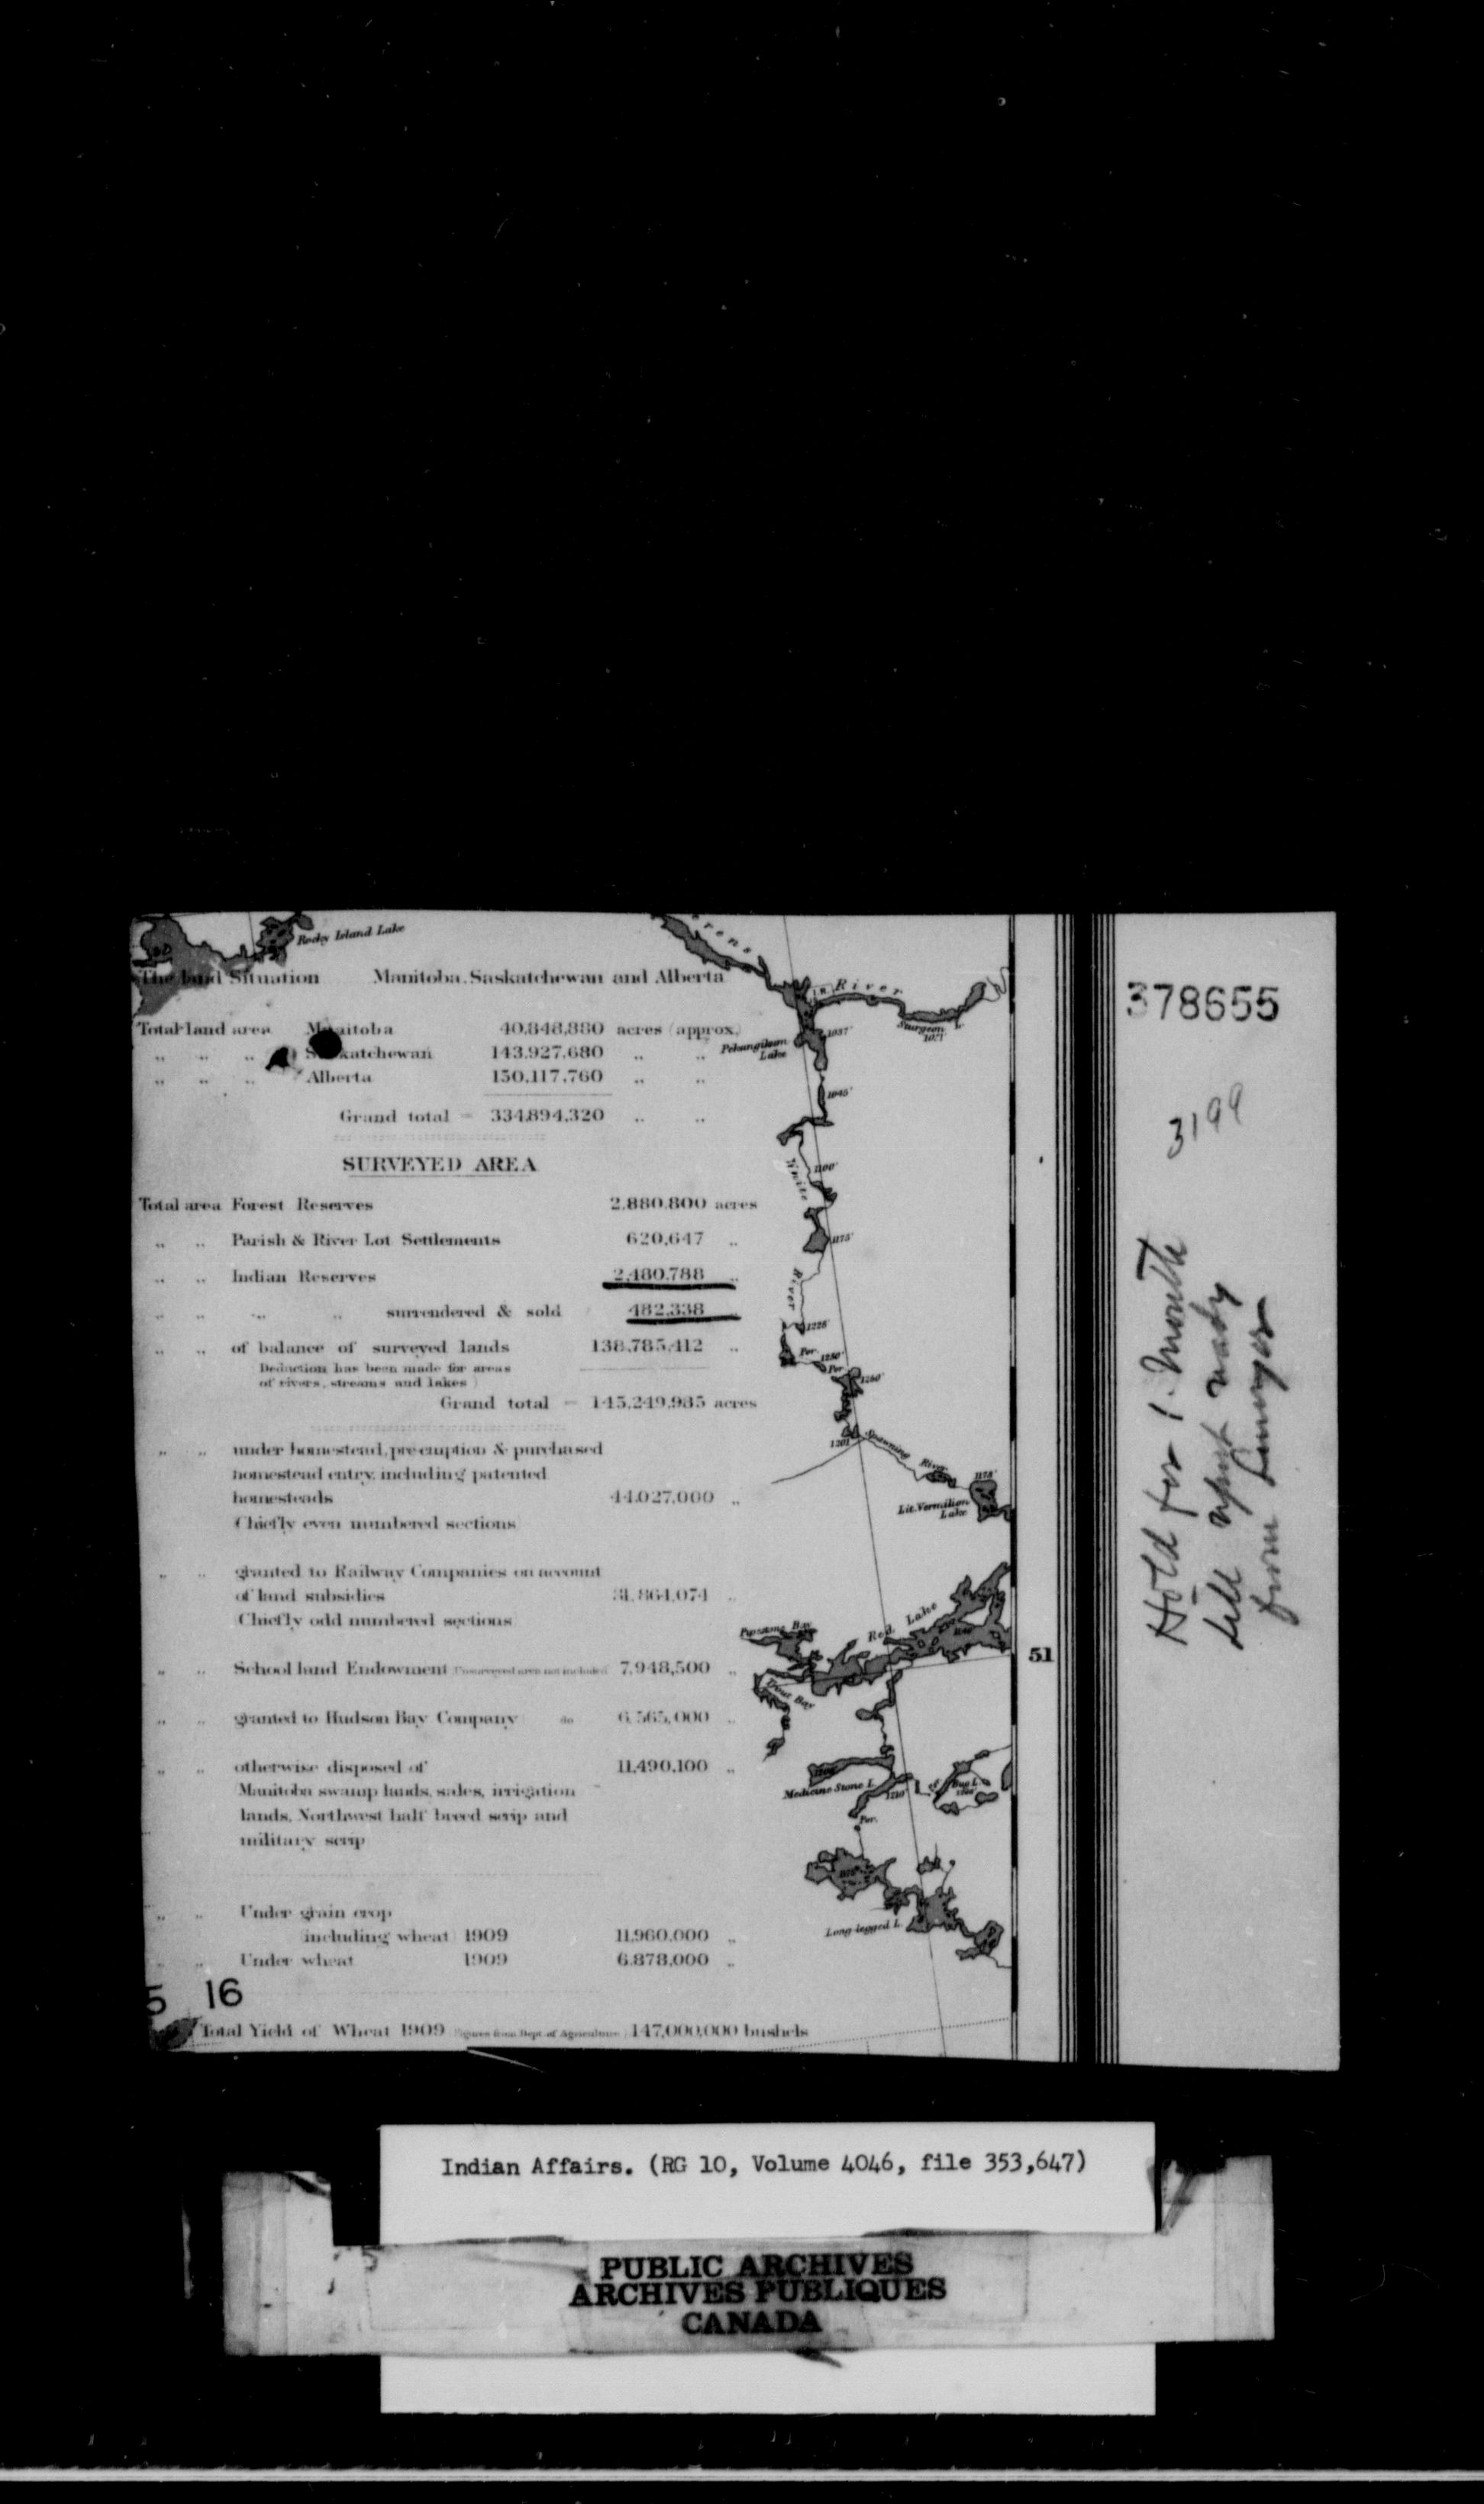 Rocky Island Lake
The land Situation Manitoba. Saskatchewan and Alberta
Total land area Manitoba 40,848,880 acres (approx.)
„ „ „ Saskatchewan 143,927,680 „ „
„ „ „ Alberta 150,117,760 „ „
Grand total = 334,894,320 „ „
SURVEYED AREA
Total area Forest Reserves 2,880,800 acres
„ „ Parish & River Lot Settlements 620,647 „
„ „ Indian Reserves 2,480,788 „
„ „ „ „ surrendered & sold 482,338 „
„ „ of balance of surveyed lands 138,785,412 „
Deduction has been made for areas
of rivers, streams and lakes )
Grand total = 145,249,985 acres
„ „ under homestead, pre-emption & purchased
homestead entry, including patented
homesteads 44,027,000 „
Chiefly even numbered sections
„ „ granted to Railway Companies on account
of land subsidies 31,864,074 „
Chiefly odd numbered sections
„ „ School land Endowment (Unsurveyed area not included) 7,948,500 „
„ „ granted to Hudson Bay Company do 6,565,000 „
„ „ otherwise disposed of 11,490,100 „
Manitoba swamp lands, sales, irrigation
lands, Northwest half breed scrip and
military scrip
„ „ Under grain crop
including wheat 1909 11,960,000 „
„ „ Under wheat 1909 6,878,000 „
5 16
Total Yield of Wheat 1909 (Figures from Dept. of Agriculture) 147,000,000 bushels
River
Sturgeon L.
1071'
1037'
Pekangikum
Lake
1045'
White
1100'
1175'
River
1228'
Por. 1250'
Por.
1260'
1301'
Spawning River
1178'
Lit. Vermilion
Lake
Pipestone Bay
Red Lake
Trout Bay
51
Medicine Stone L.
1210'
Por.
Long-legged L.
378655
3199
Hold for 1. Month
till
from
Indian Affairs. (RG 10, Volume 4046, file 353,647)
PUBLIC ARCHIVES
ARCHIVES PUBLIQUES
CANADA